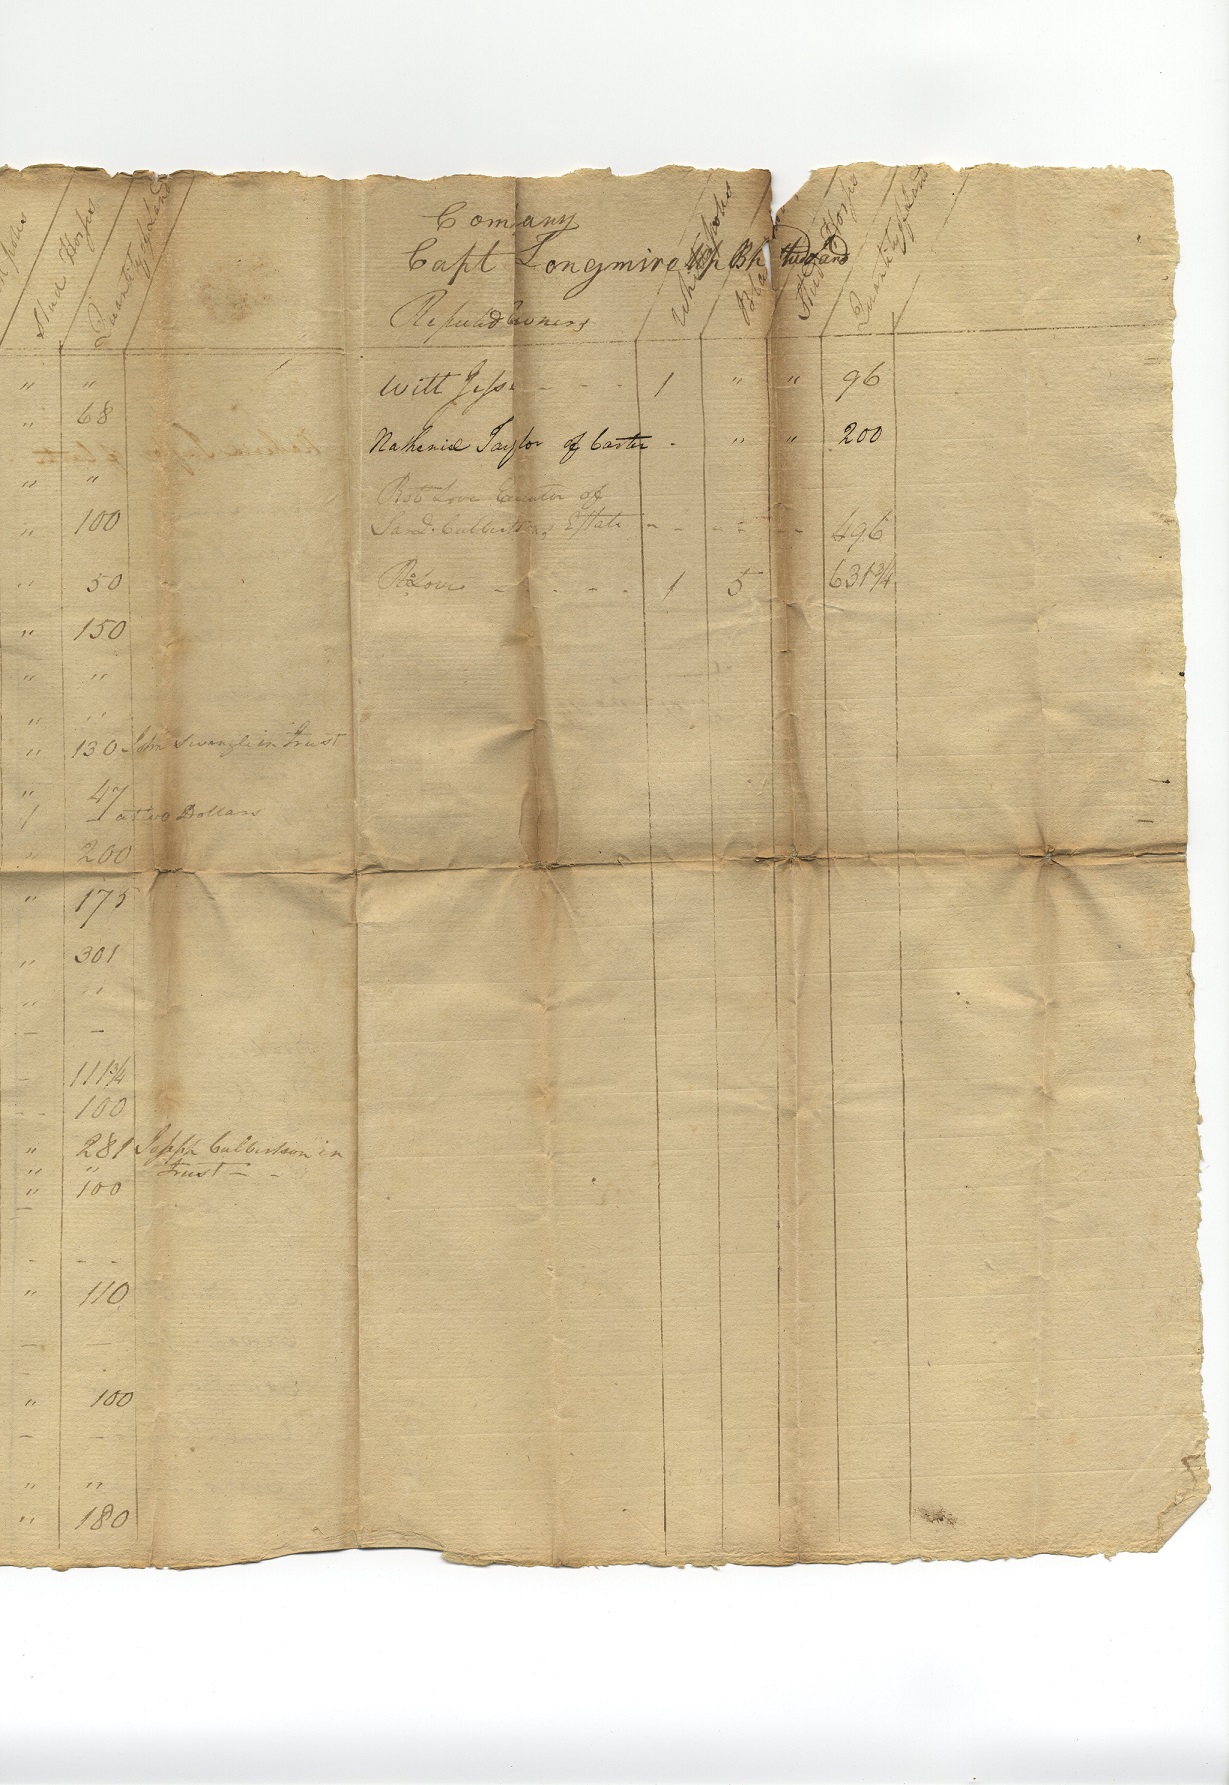 Stud Horses
Quantity of Land
" "
" 68
" "
" 100
" 50
" 150
" "
" "
" 130 John Swingle in Trust
" 47
1 - at two Dollars
" 200
" 175
" 301
" "
- -
- 111¾
- - 100
" 281 Joseph Culbertson in
" " Trust - -
" 100
- - -
" 110
- -
" 100
- -
" "
" 180
Company
Capt Longmire
Reputed Owners
White poles
Stud Horses
Quantity of Land
Witt Jesse - - - 1 " " 96
Nathaniel Taylor of Carter - " " 200
Robt Love of
Culbertsons Estate - - - - 496
Rt Love - - - - 1 5 631¾